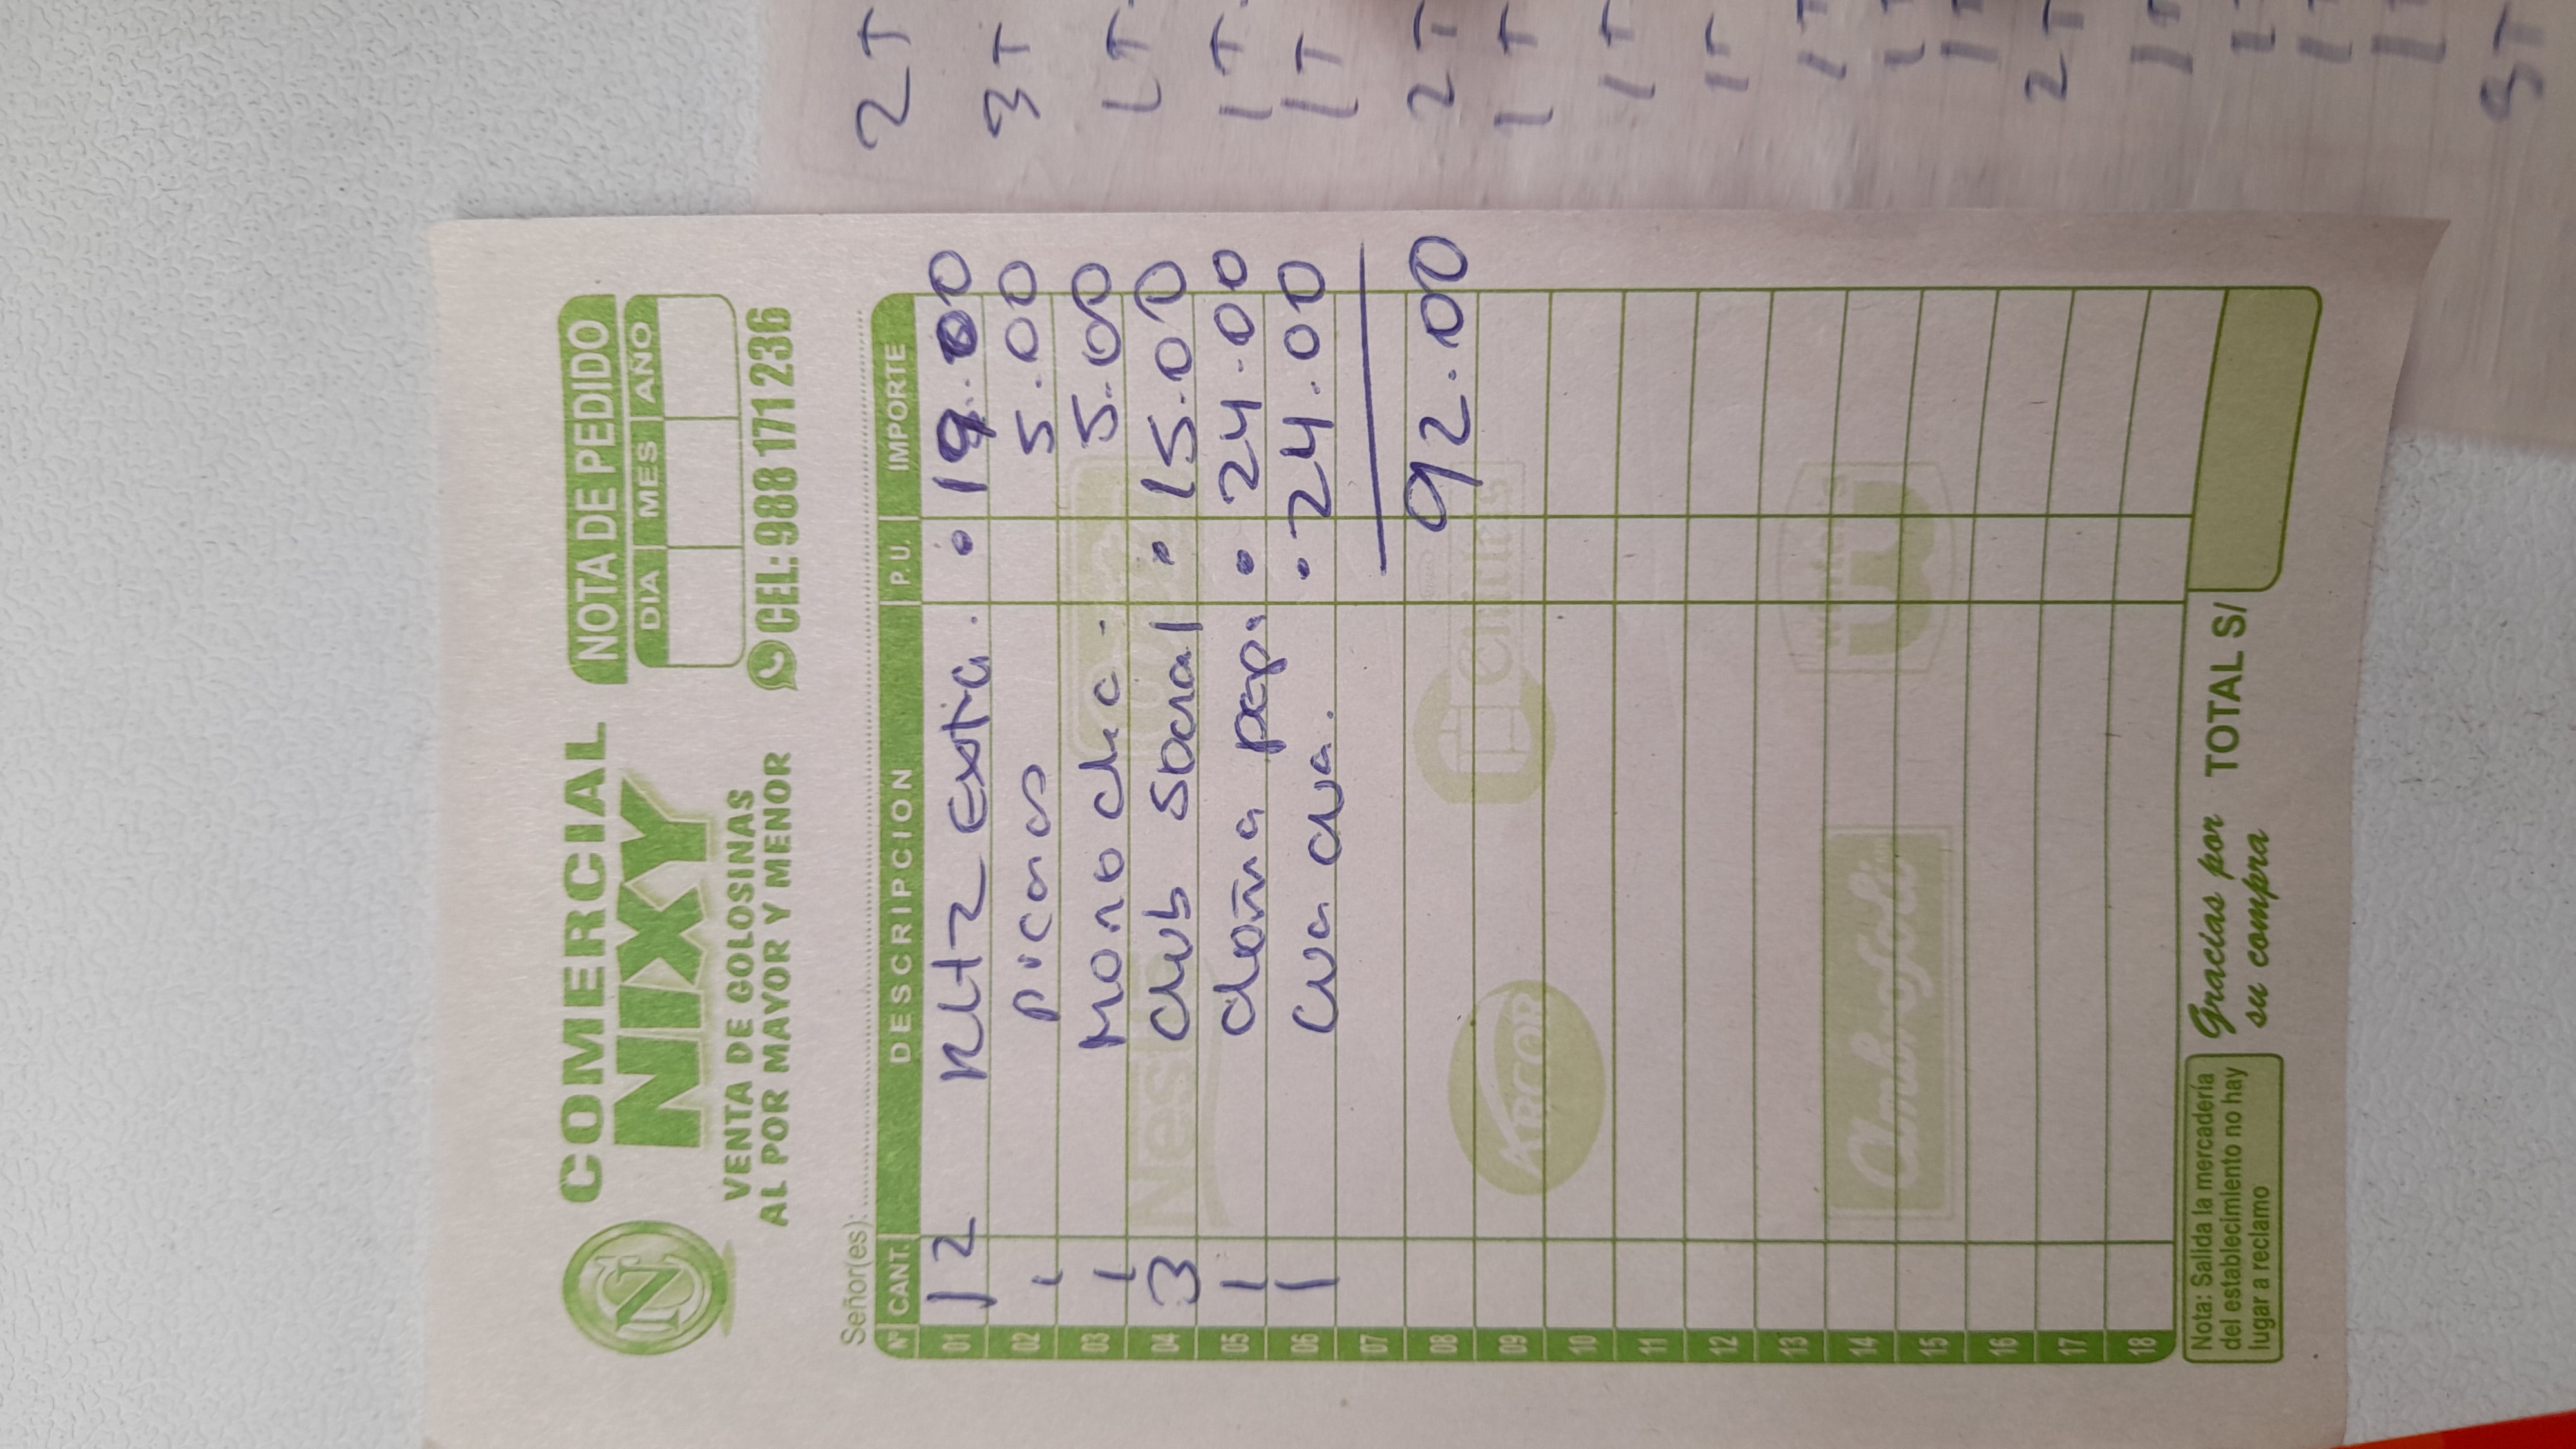 COMERCIAL
NIXY
VENTA DE GOLOSINAS
AL POR MAYOR Y MENOR
NOTA DE PEDIDO
DIA MES AÑO
CEL: 988 171 236
Señor(es):
Nº CANT. DESCRIPCION P. U. IMPORTE
01 12 Ritz Extra. 19.00
02 1 picaras 5.00
03 1 Morocha - 5.00
04 3 club social 15.00
05 1 doña pep. 24.00
06 1 cua cua. 24.00
07
08 92.00
09
10
11
12
13
14
15
16
17
18
Nestlé
ARCOR
Chiclets
Ambrosoli
winter's
W
Nota: Salida la mercadería
del establecimiento no hay
lugar a reclamo
Gracias por
su compra
TOTAL S/
2 T
3 T
1 T
1 T
1 T
2 T
1 T
1 T
1 T
1 T
1 T
1 T
2 T
1 T
1
1
1
5T